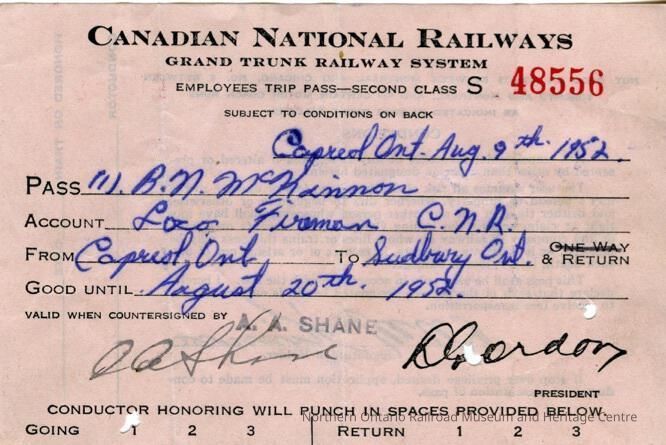 CANADIAN NATIONAL RAILWAYS
GRAND TRUNK RAILWAY SYSTEM
EMPLOYEES TRIP PASS—SECOND CLASS S 48556
SUBJECT TO CONDITIONS ON BACK
Capreol Ont. Aug. 9th. 1952.
PASS (1). B. N. McKannon
ACCOUNT Loco Fireman C.N.R.
FROM Capreol, Ont TO Sudbury Ont. ONE WAY & RETURN
GOOD UNTIL August 20th. 1952.
VALID WHEN COUNTERSIGNED BY A. A. SHANE
A A Shane D Gordon
PRESIDENT
CONDUCTOR HONORING WILL PUNCH IN SPACES PROVIDED BELOW.
Northern Ontario Railroad Museum and Heritage Centre
GOING 1 2 3 RETURN 1 2 3